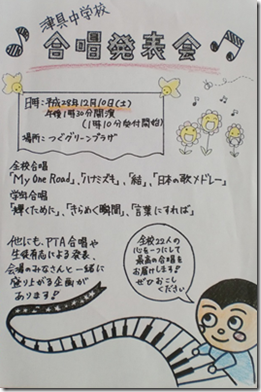 津具中学校
合唱発表会
日時：平成28年12月10日(土)
午後1時30分開演
(1時10分受付開始)
場所：つぐグリーンプラザ
全校合唱
「My One Road」、「ハナミズキ」、「結」、「日本の歌メドレー」
学年合唱
「輝くために」、「きらめく瞬間」、「言葉にすれば」
他にも、PTA合唱や
生徒有志による発表、
会場のみなさんと一緒に
盛り上がる企画が
あります！
全校22人の
心を一つにして
最高の合唱を
お届けします！
ぜひおこし
ください